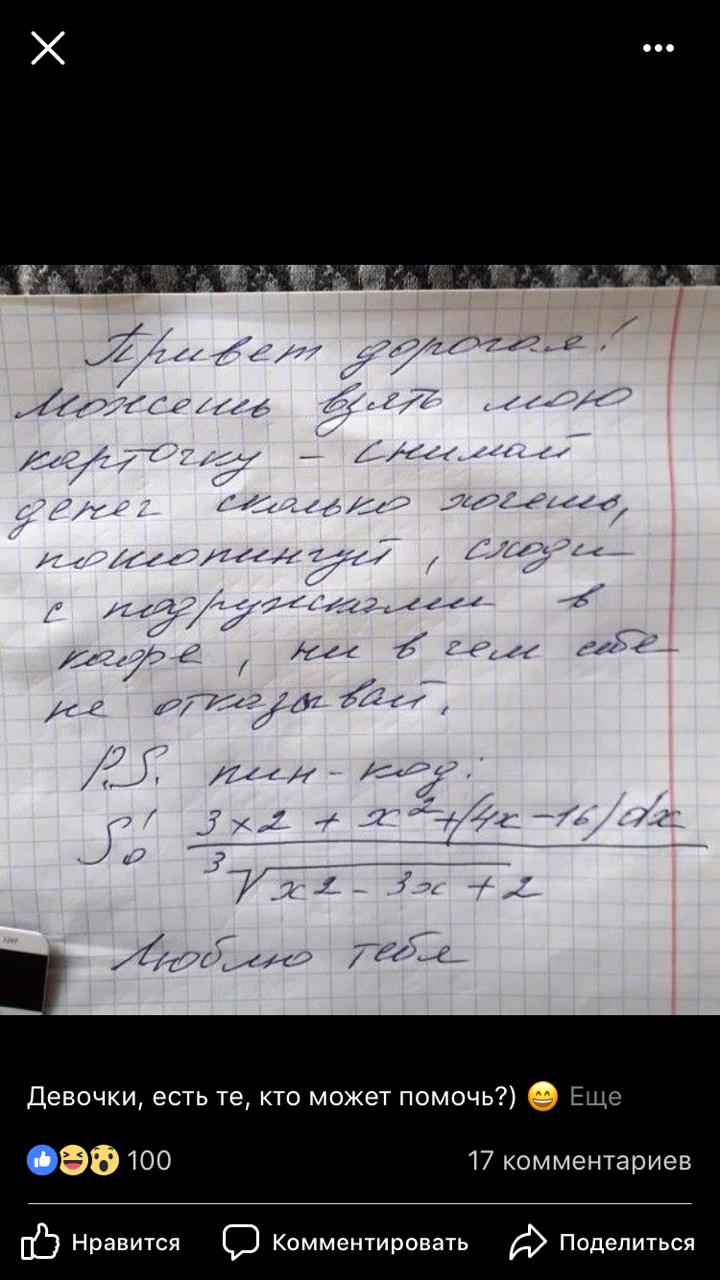 Привет дорогая!
Можешь взять мою
карточку – снимай
денег сколько хочешь,
пошопингуй, сходи
с подружками в
кафе, ни в чем себе
не отказывай.
P.S. пин-код:
∫₀¹ (3x2 + x² + (4x - 16) dx) / (³√(x2 - 3x + 2))
Люблю тебя
Девочки, есть те, кто может помочь?) 😄 Еще
100 17 комментариев
Нравится Комментировать Поделиться